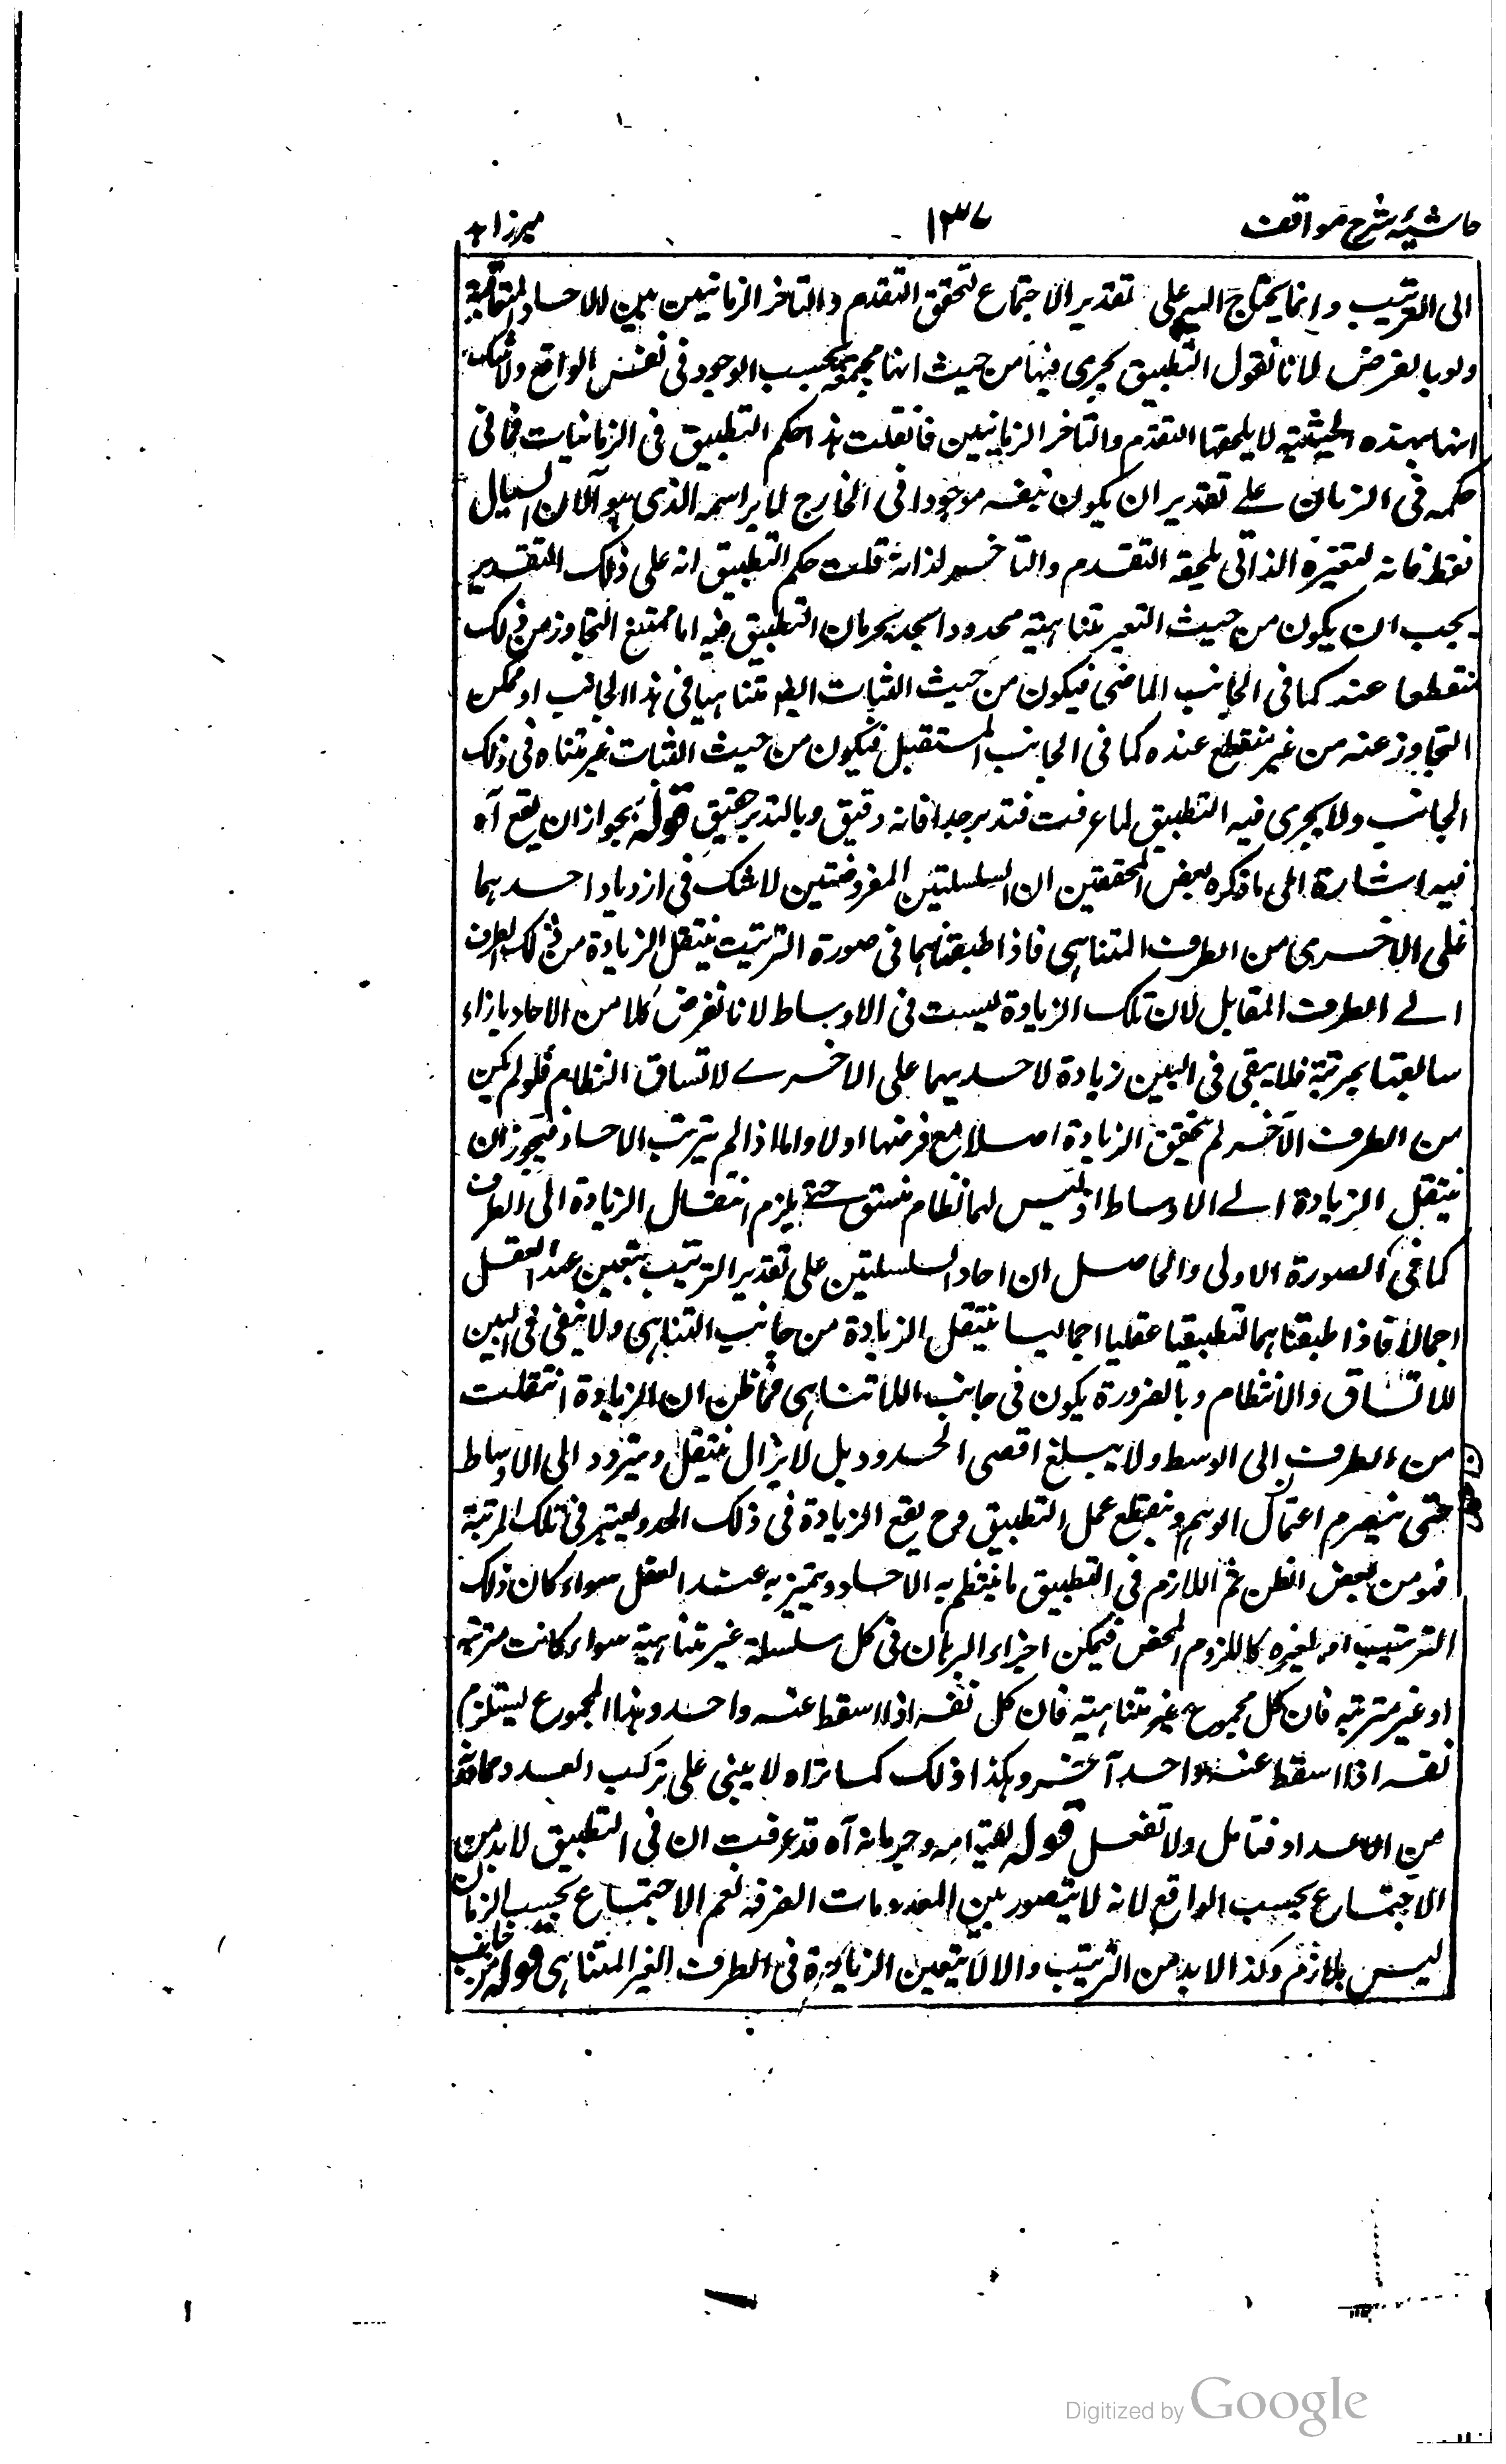 حاشيه شرح مواقف ١٣٧ ميرزاهد
الى الترتيب وانما يحتاج اليه على تقدير الاجتماع لتحقق التقدم والتاخر الزمانيين بين الاحاد المتعاقبة
ولو بالفرض لانا نقول التطبيق يجرى فيها من حيث انها مجتمعة بحسب الوجود فى نفس الواقع ولاشك
انها بهذه الحيثية لا يلحقها التقدم والتاخر الزمانيين فانقلت هذا حكم التطبيق فى الزمانيات فما فى
حكمه فى الزمان على تقدير ان يكون بنفسه موجودا فى الخارج لا براسمه الذى هو الآن السيال
فقط فانه لتغيره الذاتى يلحقه التقدم والتاخر لذاته قلت حكم التطبيق انه على ذلك التقدير
يجب ان يكون من حيث التغير متناهية محدودا بحد بجريان التطبيق فيه اما ممتنع التجاوز من ذلك
منقطعا عنه كما فى الجانب الماضى فيكون من حيث الثبات ايضا متناهيا فى هذا الجانب او ممكن
التجاوز عنه من غير منقطع عنده كما فى الجانب المستقبل فيكون من حيث الثبات غير متناه فى ذلك
الجانب ولا يجرى فيه التطبيق لما عرفت فتدبر جدا فانه دقيق وبالتدبر حقيق قوله بجواز ان يقع آه
فيه اشارة الى ما ذكره بعض المحققين ان السلسلتين المفروضتين لاشك فى ازدياد احدهما
على الاخرى من الطرف المتناهى فاذا طبقناهما فى صورة الترتيب ينتقل الزيادة من ذلك الطرف
الے الطرف المقابل لان تلك الزيادة ليست فى الاوساط لانا نفرض كلا من الاحاد بازاء
سابقتها بمرتبة فلا يبقى فى البين زيادة لاحديهما على الاخرے لاتساق النظام فلو لم يكن
من الطرف الآخر لم يتحقق الزيادة اصلا مع فرضها اولا واما اذا لم يترتب الاحاد فيجوز ان
ينتقل الزيادة الے الاوساط اذ ليس لها نظام متسق حتے يلزم انتقال الزيادة الى الطرف
كما فى الصورة الاولى والحاصل ان احاد السلسلتين على تقدير الترتيب يتعين عند العقل
اجمالا فاذا طبقناهما تطبيقيا عقليا اجماليا ينتقل الزيادة من جانب التناهى ولا يبقى فى البين
للاتساق والانتظام وبالضرورة يكون فى جانب اللاتناهى فما ظن ان الزيادة انتقلت
من الطرف الى الوسط ولا يبلغ اقصى الحدود بل لا يزال ينتقل ويتردد الى الاوساط
حتى ينصرم اعتمال الوهم وينقطع عمل التطبيق وح يقع الزيادة فى ذلك الحد ويعتبر فى تلك المرتبة
فهو من بعض الظن ثم اللازم فى التطبيق ما ينتظم به الاحاد ويتميز به عند العقل سواء كان ذلك
الترتيب او لغيره كاللزوم المحض فيمكن اجراء البرهان فى كل سلسلة غير متناهية سواء كانت مترتبة
او غير مترتبة فان كل مجموع غير متناهية فان كل نفسه اذا اسقط عنه واحد وهذا المجموع يستلزم
نفسه اذا اسقط عنه واحد آخر وهكذا وذلك كما تراه لا يبنى على تركب العدد مما تحته
من الاعداد فتامل ولا تغفل قوله وجريانه آه قد عرفت ان فى التطبيق لابد من
الاجتماع بحسب الواقع لانه لا يتصور بين المعدومات الصرفة نعم الاجتماع بحسب الزمان
ليس بلازم وكذا لابد من الترتيب والا لا يتعين الزيادة فى الطرف الغير المتناهى قوله من جانب
Digitized by Google